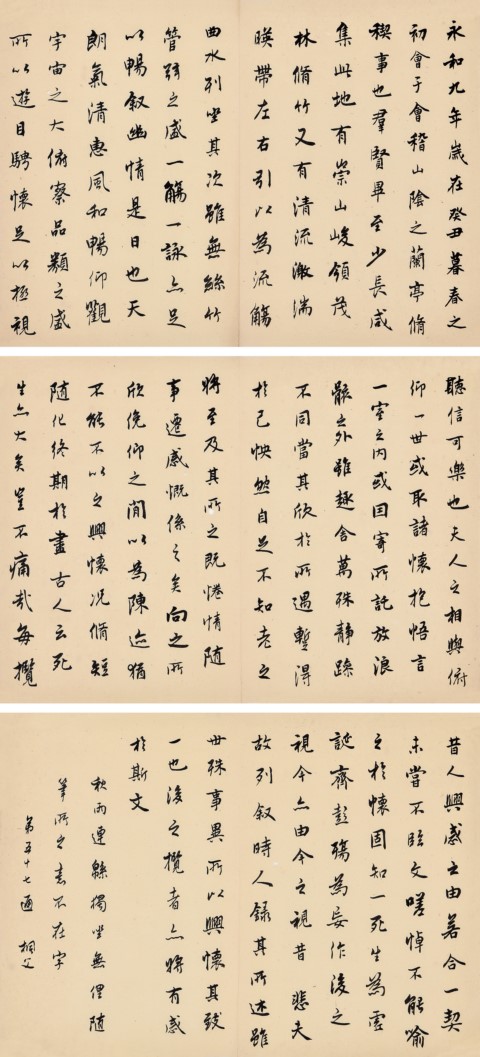 永和九年歲在癸丑暮春之
初會于會稽山陰之蘭亭脩
稧事也羣賢畢至少長咸
集此地有崇山峻領茂
林脩竹又有清流激湍
暎帶左右引以為流觴
曲水列坐其次雖無絲竹
管弦之盛一觴一詠亦足
以暢叙幽情是日也天
朗氣清惠風和暢仰觀
宇宙之大俯察品類之盛
所以遊目騁懷足以極視
聽信可樂也夫人之相與俯
仰一世或取諸懷抱悟言
一室之內或因寄所託放浪
骸之外雖趣舍萬殊靜躁
不同當其欣於所遇暫得
於己怏然自足不知老之
將至及其所之既惓情隨
事遷感慨係之矣向之所
欣俛仰之間以為陳迹猶
不能不以之興懷況脩短
隨化終期於盡古人云死
生亦大矣豈不痛哉每攬
昔人興感之由若合一契
未嘗不臨文嗟悼不能喻
之於懷固知一死生為虛
誕齊彭殤為妄作後之
視今亦由今之視昔悲夫
故列叙時人錄其所述雖
世殊事異所以興懷其致
一也後之攬者亦將有感
於斯文
秋雨連緜獨坐無俚隨
筆所之意不在字
第五十七通 桐父